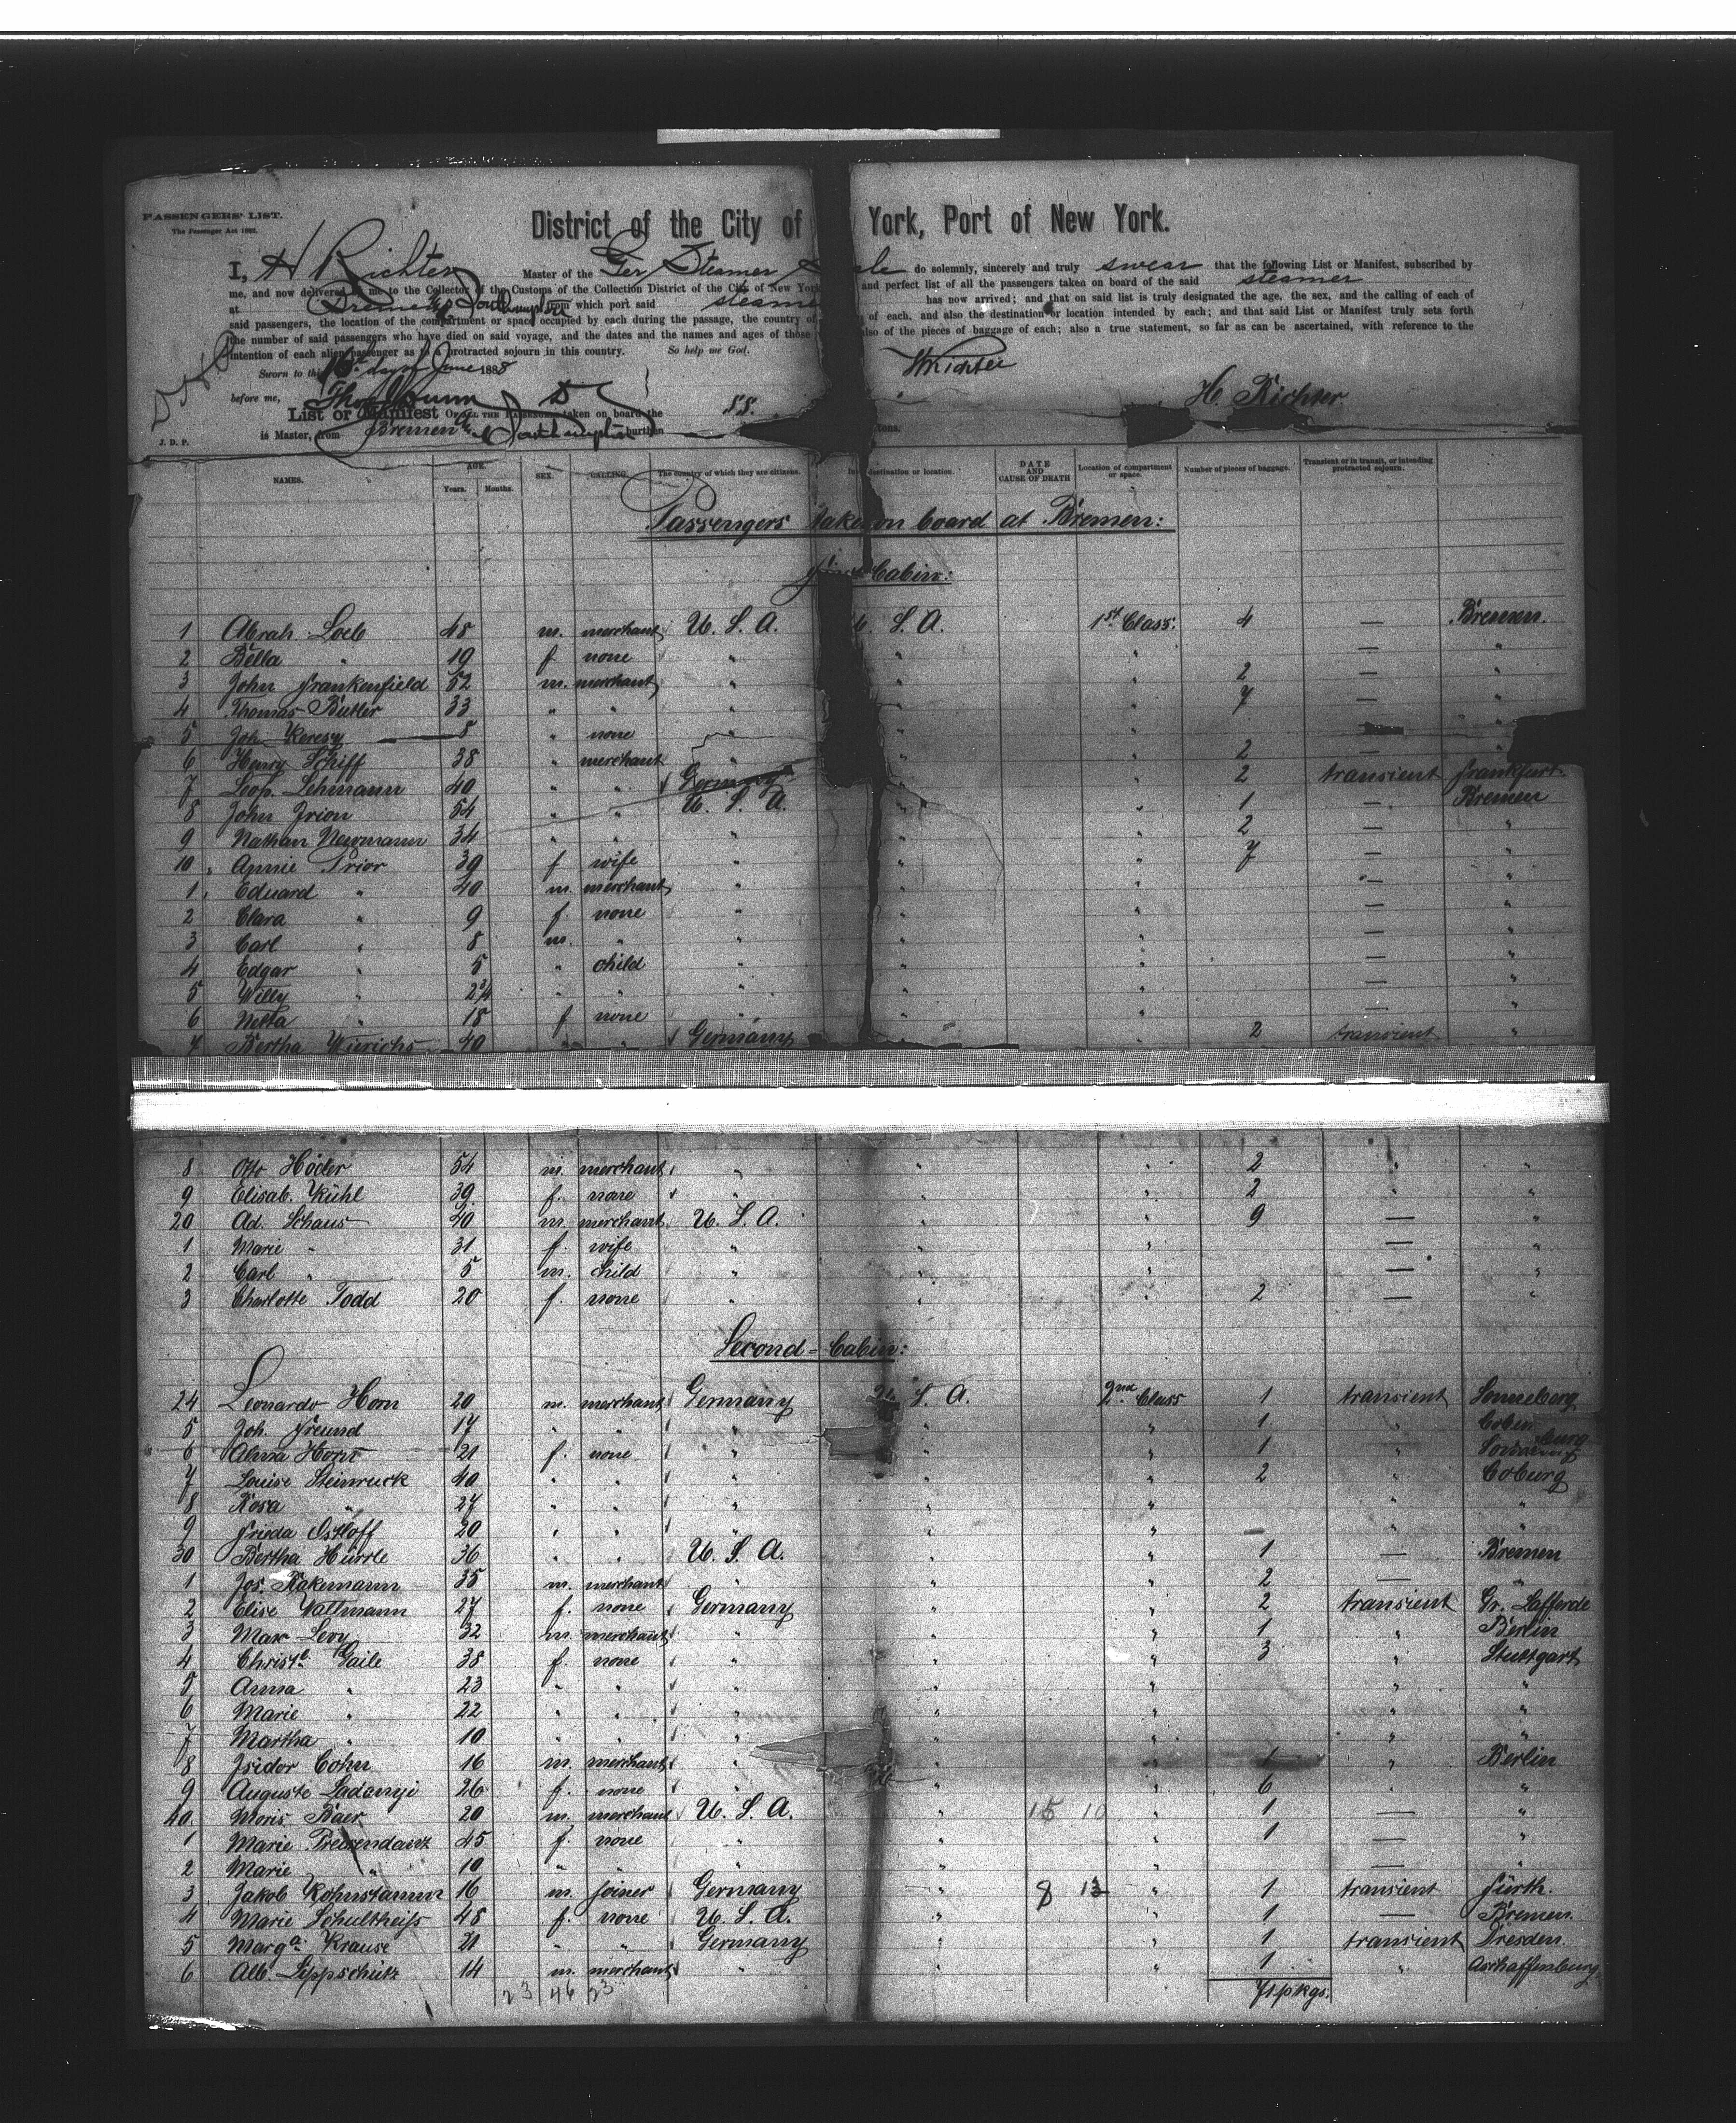 PASSENGERS' LIST.
The Passenger Act 1882.
District of the City of York, Port of New York.
I, H Richter Master of the Ger Steamer do solemnly, sincerely and truly swear that the following List or Manifest, subscribed by
me, and now delivered by me to the Collector of the Customs of the Collection District of the City of New York and perfect list of all the passengers taken on board of the said steamer
at Bremen & Southampton from which port said steamer has now arrived; and that on said list is truly designated the age, the sex, and the calling of each of
said passengers, the location of the compartment or space occupied by each during the passage, the country of of each, and also the destination or location intended by each; and that said List or Manifest truly sets forth
the number of said passengers who have died on said voyage, and the dates and the names and ages of those also of the pieces of baggage of each; also a true statement, so far as can be ascertained, with reference to the
intention of each alien passenger as to a protracted sojourn in this country. So help me God.
Sworn to this 16th day of June 1888 HRichter
before me, Thos Dunn D C
List or Manifest OF ALL THE PASSENGERS taken on board the SS. H. Richter
J. D. P. is Master, from Bremen & Southampton burthen tons.
NAMES. AGE. Years. Months. SEX. CALLING. The country of which they are citizens. destination or location. DATE AND CAUSE OF DEATH Location of compartment or space. Number of pieces of baggage. Transient or in transit, or intending protracted sojourn.
Passengers taken on board at Bremen:
First Cabin:
1 Abrah. Loeb 48 m. merchant U. S. A. U. S. A. 1st Class. 4 — Bremen.
2 Bella " 19 f. none " " " — "
3 John Frankenfield 52 m. merchant " " " 2 — "
4 Thomas Butler 33 " " " " " 7 — "
5 Joh. Keresy 8 " none " " " — "
6 Henry Schiff 38 " merchant " " " 2 — "
7 Leop. Lehmann 40 " " Germany " " 2 transient Frankfurt
8 John Irion 54 " " U. S. A. " " 1 — Bremen
9 Nathan Newmann 34 " " " " " 2 — "
10 Annie Prior 39 f wife " " " 7 — "
1 Eduard " 40 m. merchant " " " — "
2 Clara " 9 f. none " " " — "
3 Carl " 8 m. " " " " — "
4 Edgar " 5 " child " " " — "
5 Willy " 2 3/4 " " " " " — "
6 Netta " 18 f none " " " — "
7 Bertha Würichs 40 " " Germany " " 2 transient "
8 Otto Höder 54 m. merchant " " " 2 " "
9 Elisab. Kühl 39 f. none " " " 2 " "
20 Ad. Schaus 40 m. merchant U. S. A. " " 9 — "
1 Marie " 31 f. wife " " " — "
2 Carl " 5 m. child " " " — "
3 Charlotte Todd 20 f. none " " " 2 — "
Second-Cabin:
24 Leonardo Horn 20 m. merchant Germany U. S. A. 2nd Class 1 transient Sonneberg
5 Joh. Freund 17 " " " " " 1 " Coburg
6 Alma Horn 21 f. none " " " 1 " Sonneberg
7 Louise Steinruck 40 " " " " " 2 " Coburg
8 Rosa " 27 " " " " " " "
9 Frieda Ostloff 20 " " " " " — " "
30 Bertha Hürrle 36 " " U. S. A. " " 1 — Bremen
1 Jos. Rakemann 35 m. merchant " " " 2 — "
2 Elise Waltmann 27 f. none Germany " " 2 transient Gr. Lafferde
3 Max Levy 32 m. merchant " " " 1 " Berlin
4 Christe. Gaile 38 f. none " " " 3 " Stuttgart
5 Anna " 23 " " " " " " "
6 Marie " 22 " " " " " " "
7 Martha " 10 " " " " " " "
8 Isidor Cohn 16 m. merchant " " " 1 " Berlin
9 Auguste Ladanyi 26 f. none " " " 6 " "
40 Moris Baer 20 m. merchant U. S. A. " 15 10 " 1 — "
1 Marie 45 f. none " " " 1 — "
2 Marie " 10 " " " " " — "
3 Jakob Kohnstamm 16 m. joiner Germany " 8 13 " 1 transient Fürth.
4 Marie Schultheiss 48 f. none U. S. A. " " 1 — Bremen.
5 Marga. Krause 21 " " Germany " " 1 transient Dresden.
6 Alb. Lippschütz 14 m. merchant " " " 1 " Aschaffenburg
23 46 23 71 pkgs.